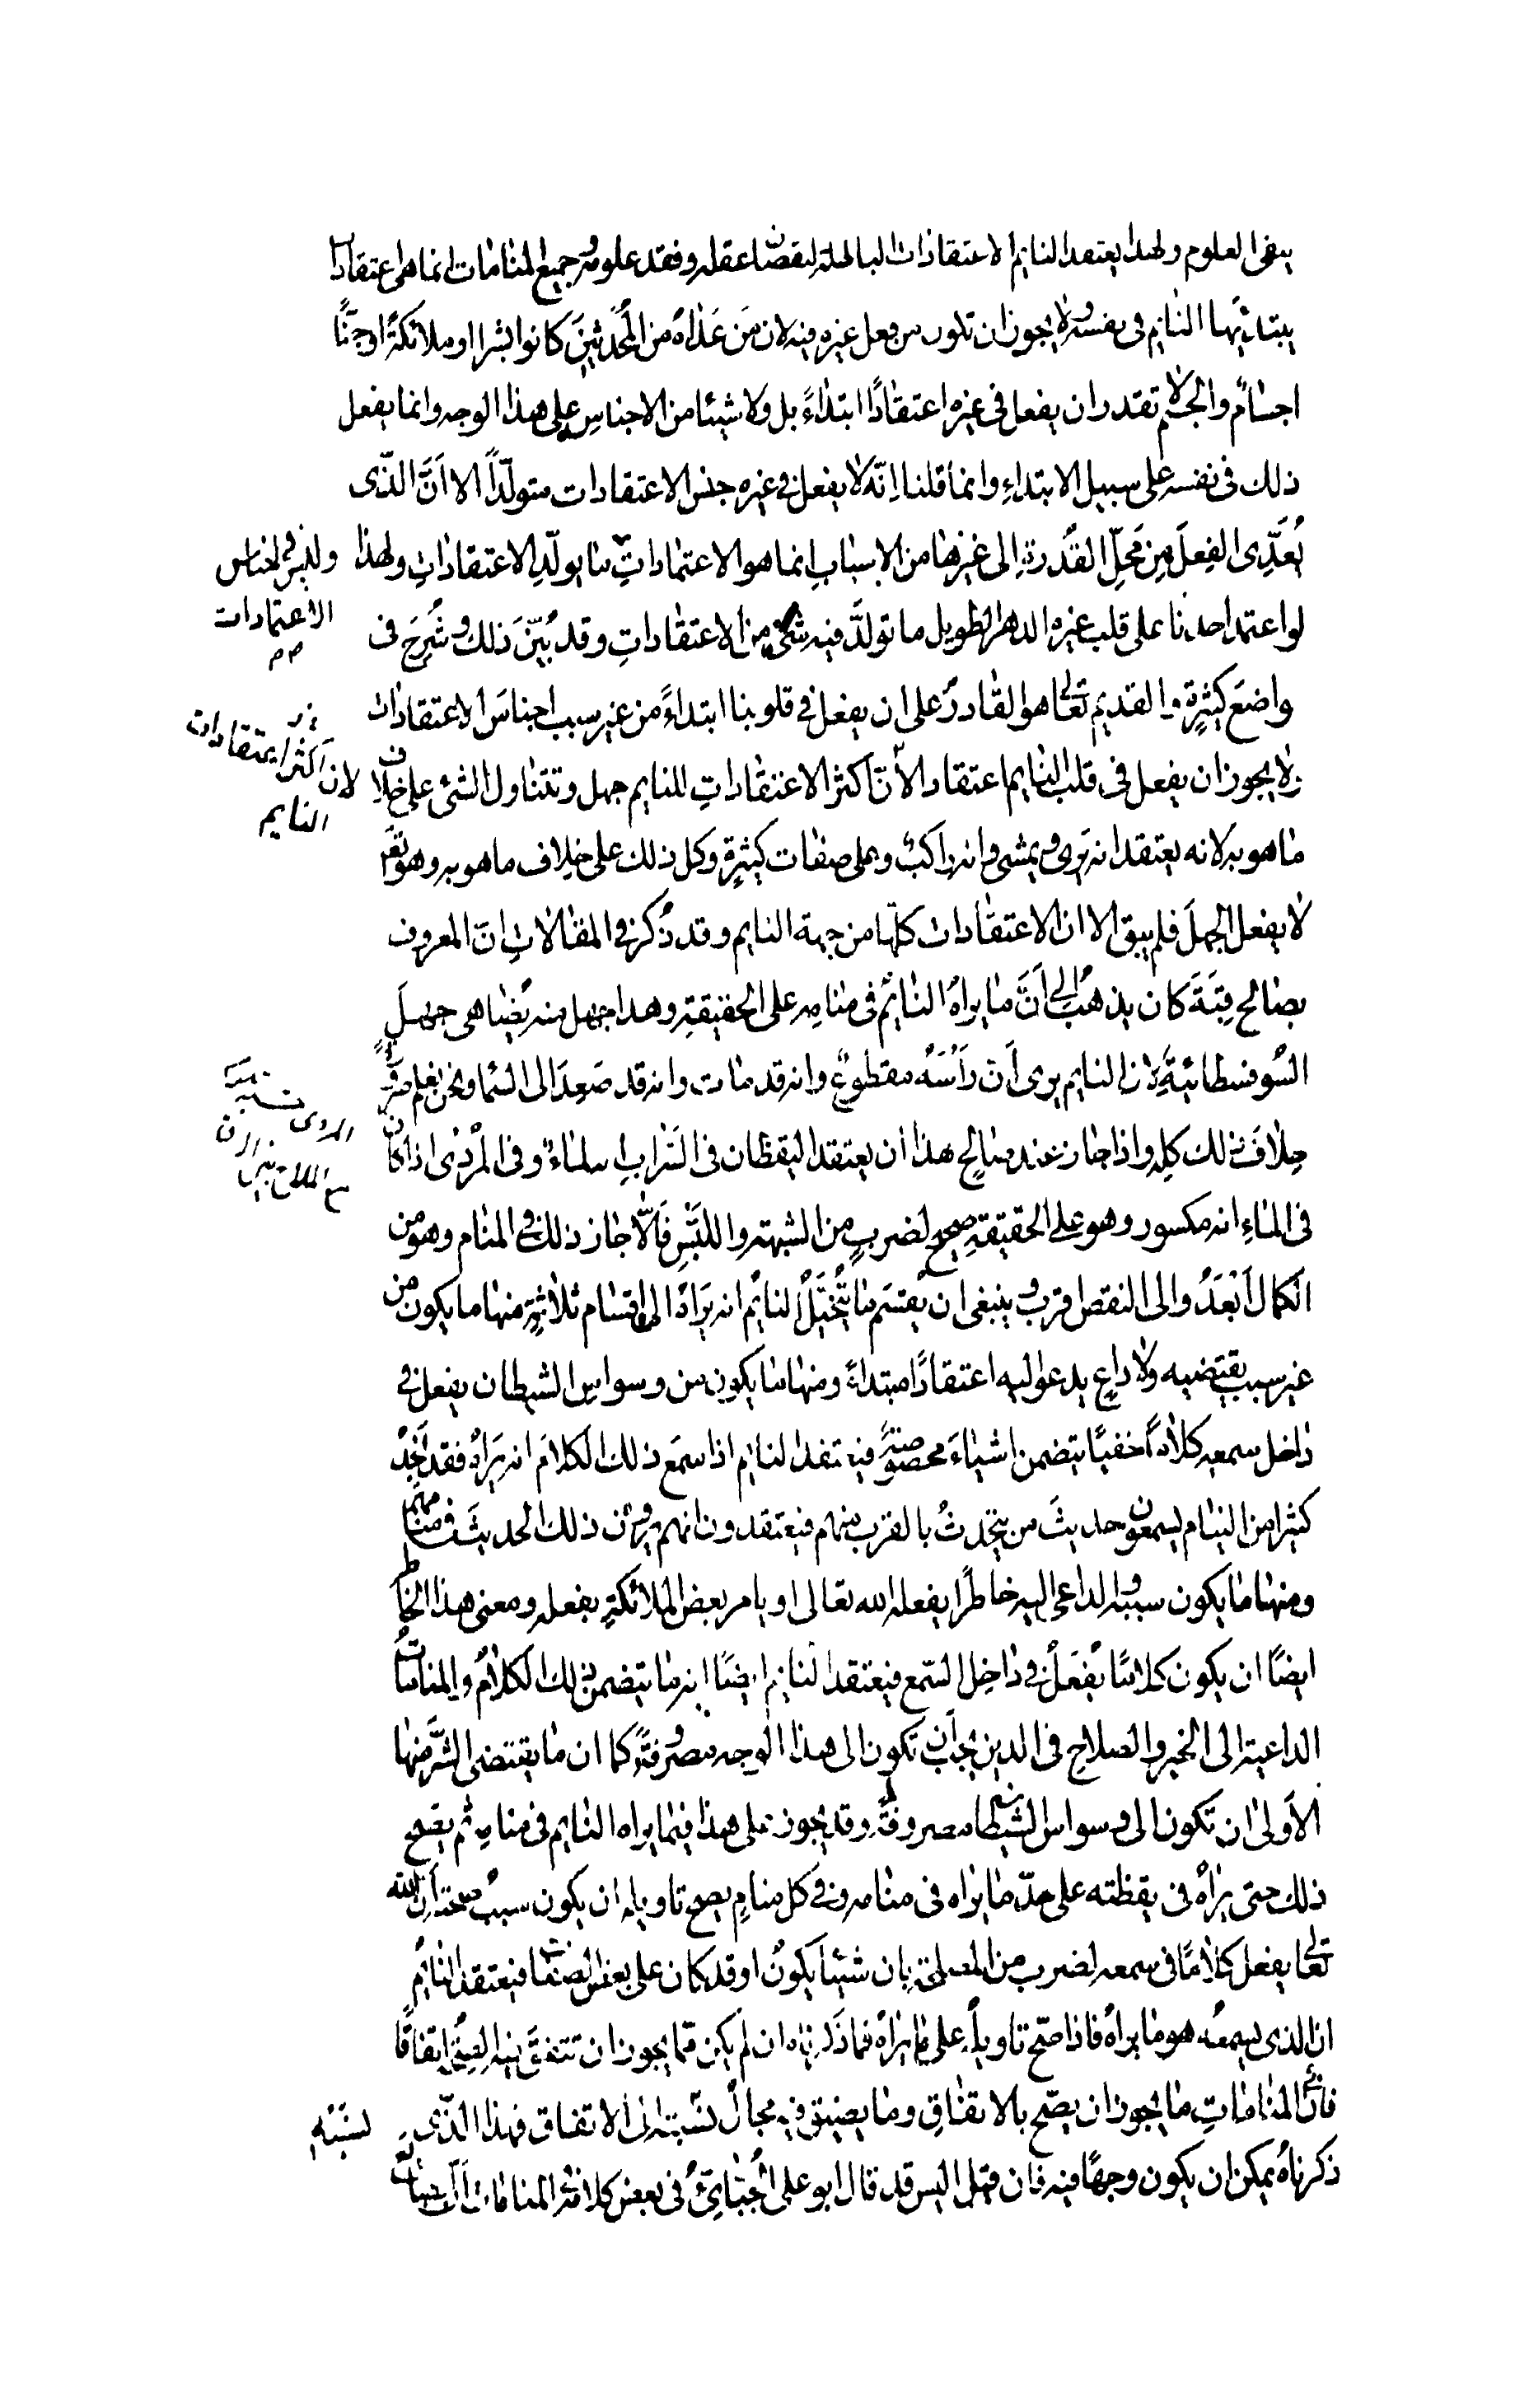 ينفى العلوم ولهذا يعتقد النايم الاعتقادات الباطلة لنقصان عقله وفقد علومه وجميع المنامات انما هى اعتقادات
يبتدئها النايم فى نفسه ولا يجوز ان تكون من فعل غيره فيه لان من عداه من المحدثين كانوا بشرا او ملائكة او جنّا
اجسام والجسم لا تقدر ان يفعل فى غيره اعتقادًا ابتداءً بل ولا شيئا من الاجناس على هذا الوجه وانما يفعل
ذلك فى نفسه على سبيل الابتداء وانما قلنا انّه لا يفعل فى غيره جنس الاعتقادات متولّدًا الا انَّ الذّى
يُعَدِّى الفِعلَ مِن مَحَلِّ القُدرةِ الى غيرها من الاسبابِ انما هو الاعتمادات ما يولّد الاعتقاداتِ ولهذا
وليس فى اجناس
الاعتمادات
لو اعتمد احدنا على قلب غيره الدهر الطويل ما تولّد فيه شئ من الاعتقاداتِ وقد بُيّنَ ذلك وشُرِحَ فى
واضعَ كثيرةٍ والقديم تعالى هو القادرُ على ان يفعل فى قلوبنا ابتداءً من غير سبب اجناسَ الاعتقادات
ولا يجوز ان يفعل فى قلب النايم اعتقاد الانّ اكثر الاعتقاداتِ للنايم جهل وتتناول الشئ على خلاف
لان اكثر اعتقادات
النايم
ما هو به لانه يعتقد انه يَرى ويمشى وانه راكبٌ وعلى صفات كثيرةٍ وكل ذلك على خلاف ما هو به وهو تعَ
لا يفعل الجهلَ فلم يبق الا ان الاعتقادات كلّها من جهة النايم وقد ذُكر فى المقالاتِ انّ المعروف
بصالح قبّة كان يذهبُ الى اَنَّ ما يراهُ النايم فى منامه على الحقيقةِ وهذا جهل منه يُضاهى جهلَ
السُوفسطائيةِ لان النايم يرى اَن رَأسَهُ مقطوعٌ وانه قد مات وانه قد صَعِدَ الى السّما ونحن نعلم ضرورةً
خلافَ ذلك كلِه واذا جاز عند صالحٍ هذا ان يعتقد اليقظان فى السَرابِ انه ماءٌ وفى المُرْدِى اذا كان
فى الماءِ انه مكسور وهو على الحقيقةِ صحيح لضربٍ من الشبهة واللبْس فَاَلّا جاز ذلك فى المنام وهو من
الكمال اَبْعَدُ والى النقص اقرب وينبغى ان يُقسَم ما يُتَخَيَّلُ النايُم انه يَراهُ الى اقسام ثلاثةٍ منها ما يكون من
غير سبب يقتضيه ولا داعٍ يدعو اليه اعتقادًا مبتداءً ومنها ما يكون من وسواسِ الشيطان يفعل فى
داخل سمعه كلامًا خفيًا يتضمن اشياءَ مخصوصةً فيعتقد النايم اذا سمعَ ذلك الكلامَ انه يَراهُ فقد نجد
كثيرا من النيام يسمعون حديثَ من يتحدثُ بالقرب منهم فيعتقدون انهم يرون ذلك الحديثَ فى منامهم
ومنها ما يكون سببه والداعى اليه خاطرًا يفعله الله تعالى او يامر بعض الملائكةِ بفعله ومعنى هذا الخاطر
ايضًا ان يكون كلامًا يُفعَلُ فى داخِل السّمع فيعتقد النايم ايضًا انه ما يتضمن ذلك الكلامُ والمناماتُ
الداعية الى الخير والصلاحِ فى الدين يجب ان تكون الى هذا الوجه مصروفةً كما ان ما يقتضى الشَّر منها
الاَولىٰ ان تكون الى وسواس الشيطان مصروفةً وقد يجوز على هذا فيما يراه النايم فى منامه ثم يصح
ذلك حتى يراهُ فى يقظته على حدّ ما يراه فى منامه وفى كل منامٍ يصح تاويله ان يكون سببُ صحته اَن الله
تعالى يفعل كلامًا فى سمعه لضرب من المصلحة بان شيئاً يكونُ او قد كان على بعض الصفات فيعتقد النايُم
ان الذى يسمعُه هو ما يراهُ فاذا صحّ تاويلُه على ما يراهُ فما ذكرناه ان لم يكن ممّا يجوز ان تتفقَ فيه الصِحّة اتفاقًا
فانّ المناماتِ ما يجوز ان يصّح بالاتفاقِ وما يضيق فيه مجالُ نسْبته الى الاتفاق فهذا الذّى
لنسبته
ذكرناهُ يمكن ان يكون وجهًا فيه فان قيل اليس قد قال ابو على الجُبائىُّ فى بعض كلامه فى المنامات